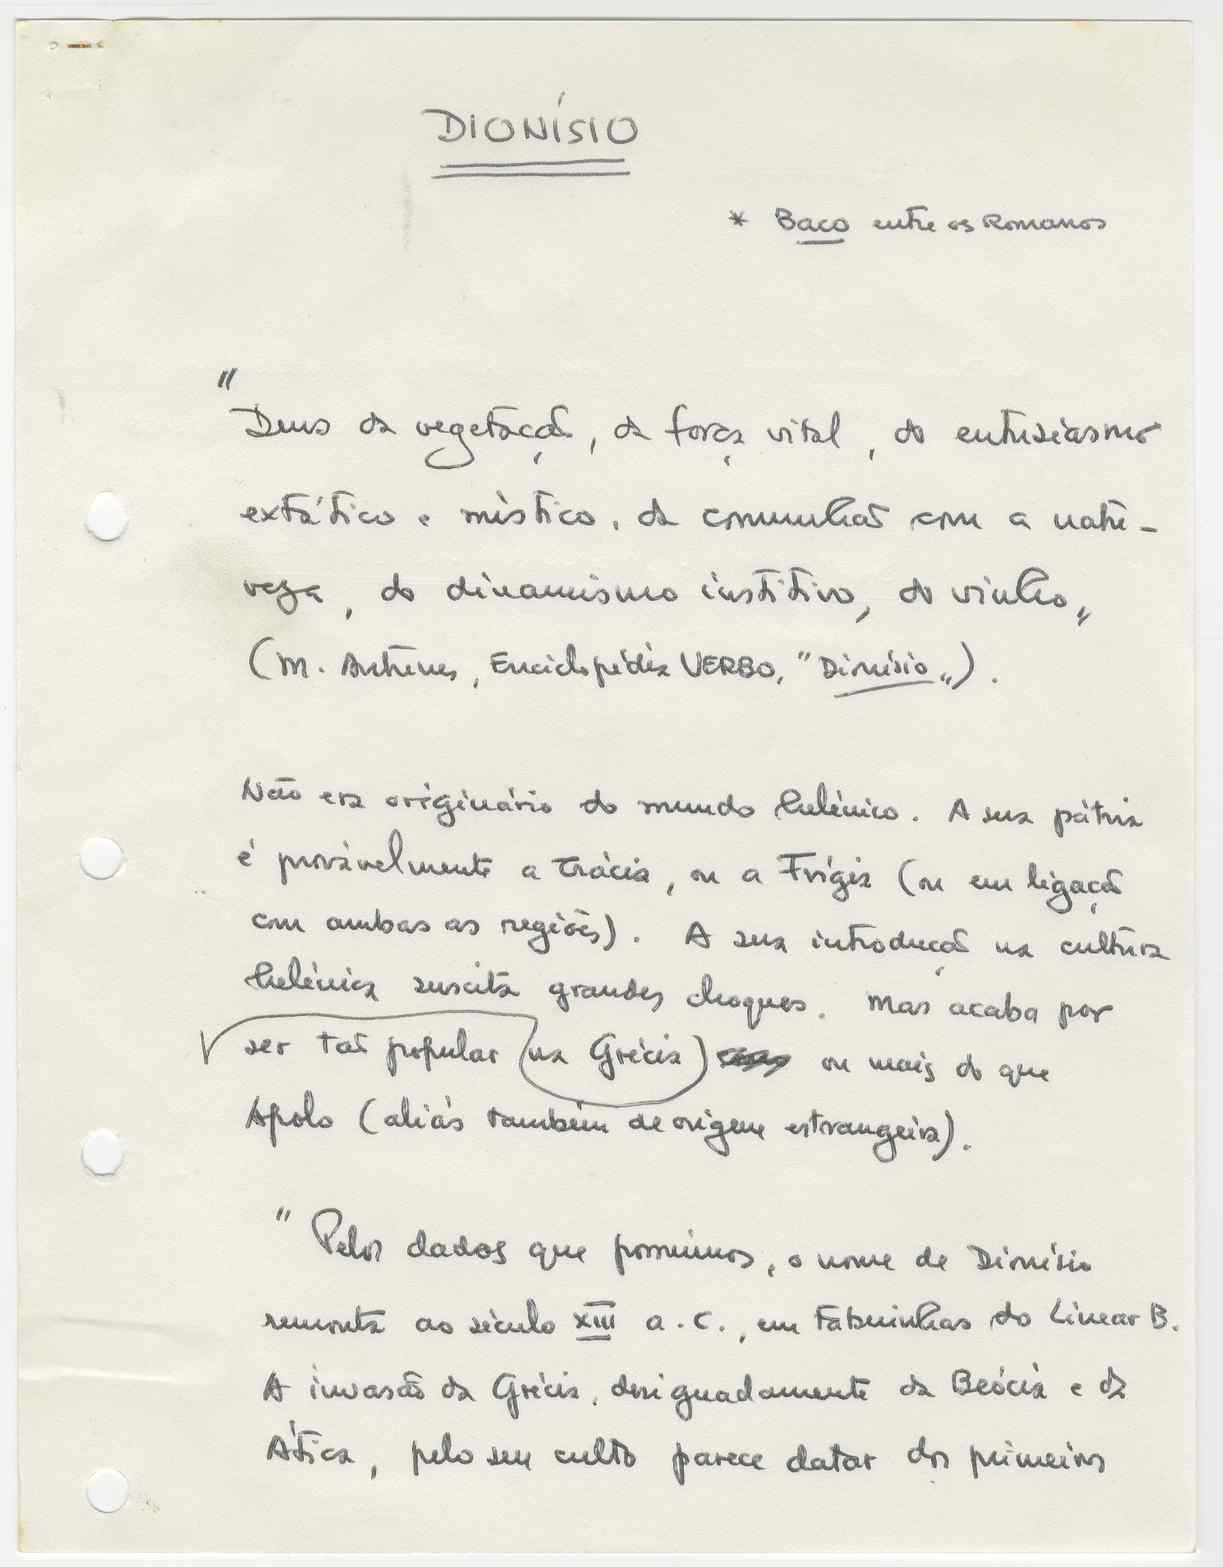 DIONÍSIO
* Baco entre os Romanos
"
Deus da vegetação, da força vital, do entusiasmo
extático e místico, da comunhão com a natu-
reza, do dinamismo institivo, do vinho"
(M. Antunes, Enciclopédia VERBO, "Dionísio").
Não era originário do mundo helénico. A sua pátria
é provàvelmente a Trácia, ou a Frígia (ou em ligação
com ambas as regiões). A sua introdução na cultura
helénica suscita grandes choques. Mas acaba por
ser tão popular (na Grécia) ou mais do que
Apolo (aliás também de origem estrangeira).
"Pelos dados que possuimos, o nome de Dionísio
remonta ao século XIII a.C., em tabuinhas do Linear B.
A invasão da Grécia, designadamente da Beócia e da
Ática, pelo seu culto parece datar dos primeiros